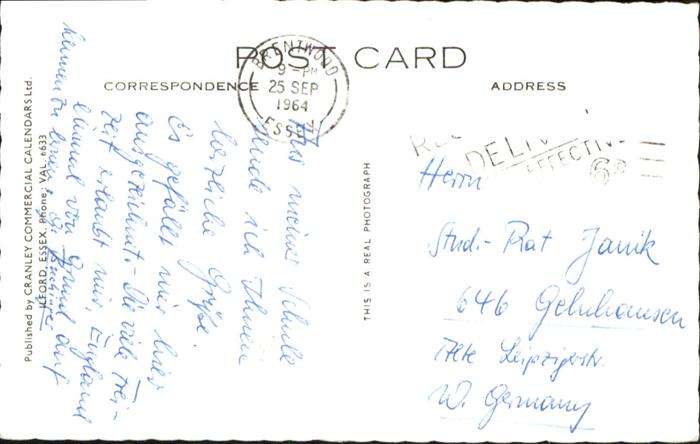 POST CARD
CORRESPONDENCE
ADDRESS
BRENTWOOD
9-PM
25 SEP
1964
ESSEX
Published by CRANLEY COMMERCIAL CALENDARS Ltd.
ILFORD, ESSEX. Phone: VAL 4633
THIS IS A REAL PHOTOGRAPH
Aus meiner Schule
sende ich Ihnen
herzliche Grüße.
Es gefällt mir hier
ausgezeichnet. Die viele Frei-
zeit erlaubt mir, England
einmal von Grund auf
kennenzulernen.
DELIV
EFFECTIV
Herrn
Stud.-Rat Janik
646 Gelnhausen
Alte Leipzigerstr.
W. Germany